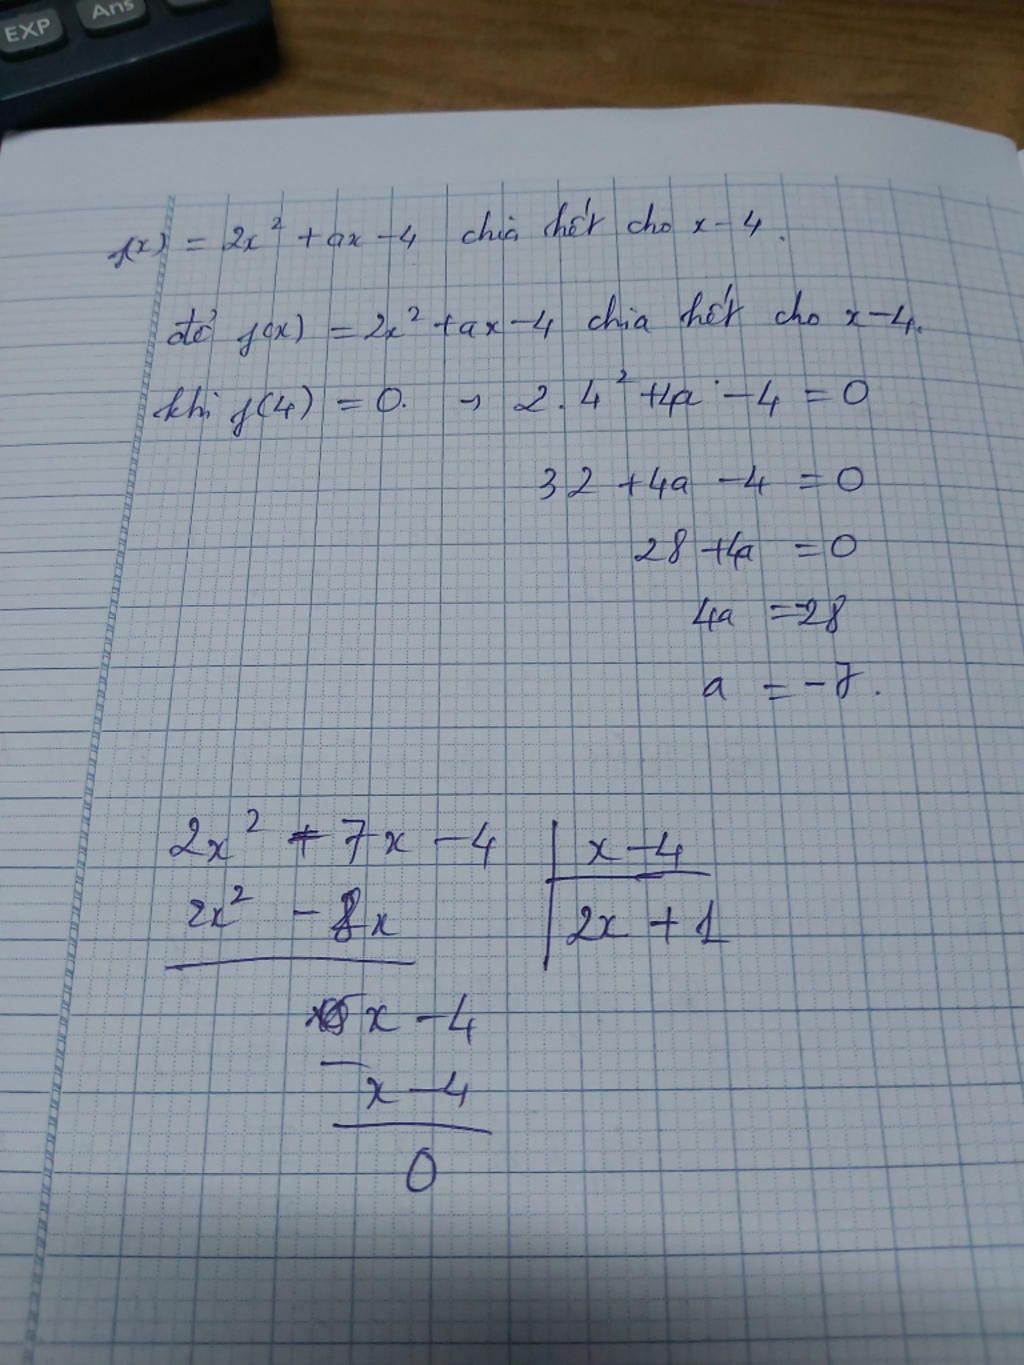 EXP Ans
f(x) = 2x² + ax - 4 chia hết cho x - 4.
để f(x) = 2x² + ax - 4 chia hết cho x - 4.
khi f(4) = 0. → 2.4² + 4a - 4 = 0
32 + 4a - 4 = 0
28 + 4a = 0
4a = -28
a = -7.
2x² - 7x - 4 | x - 4
2x² - 8x | 2x + 1
x - 4
- x - 4
0